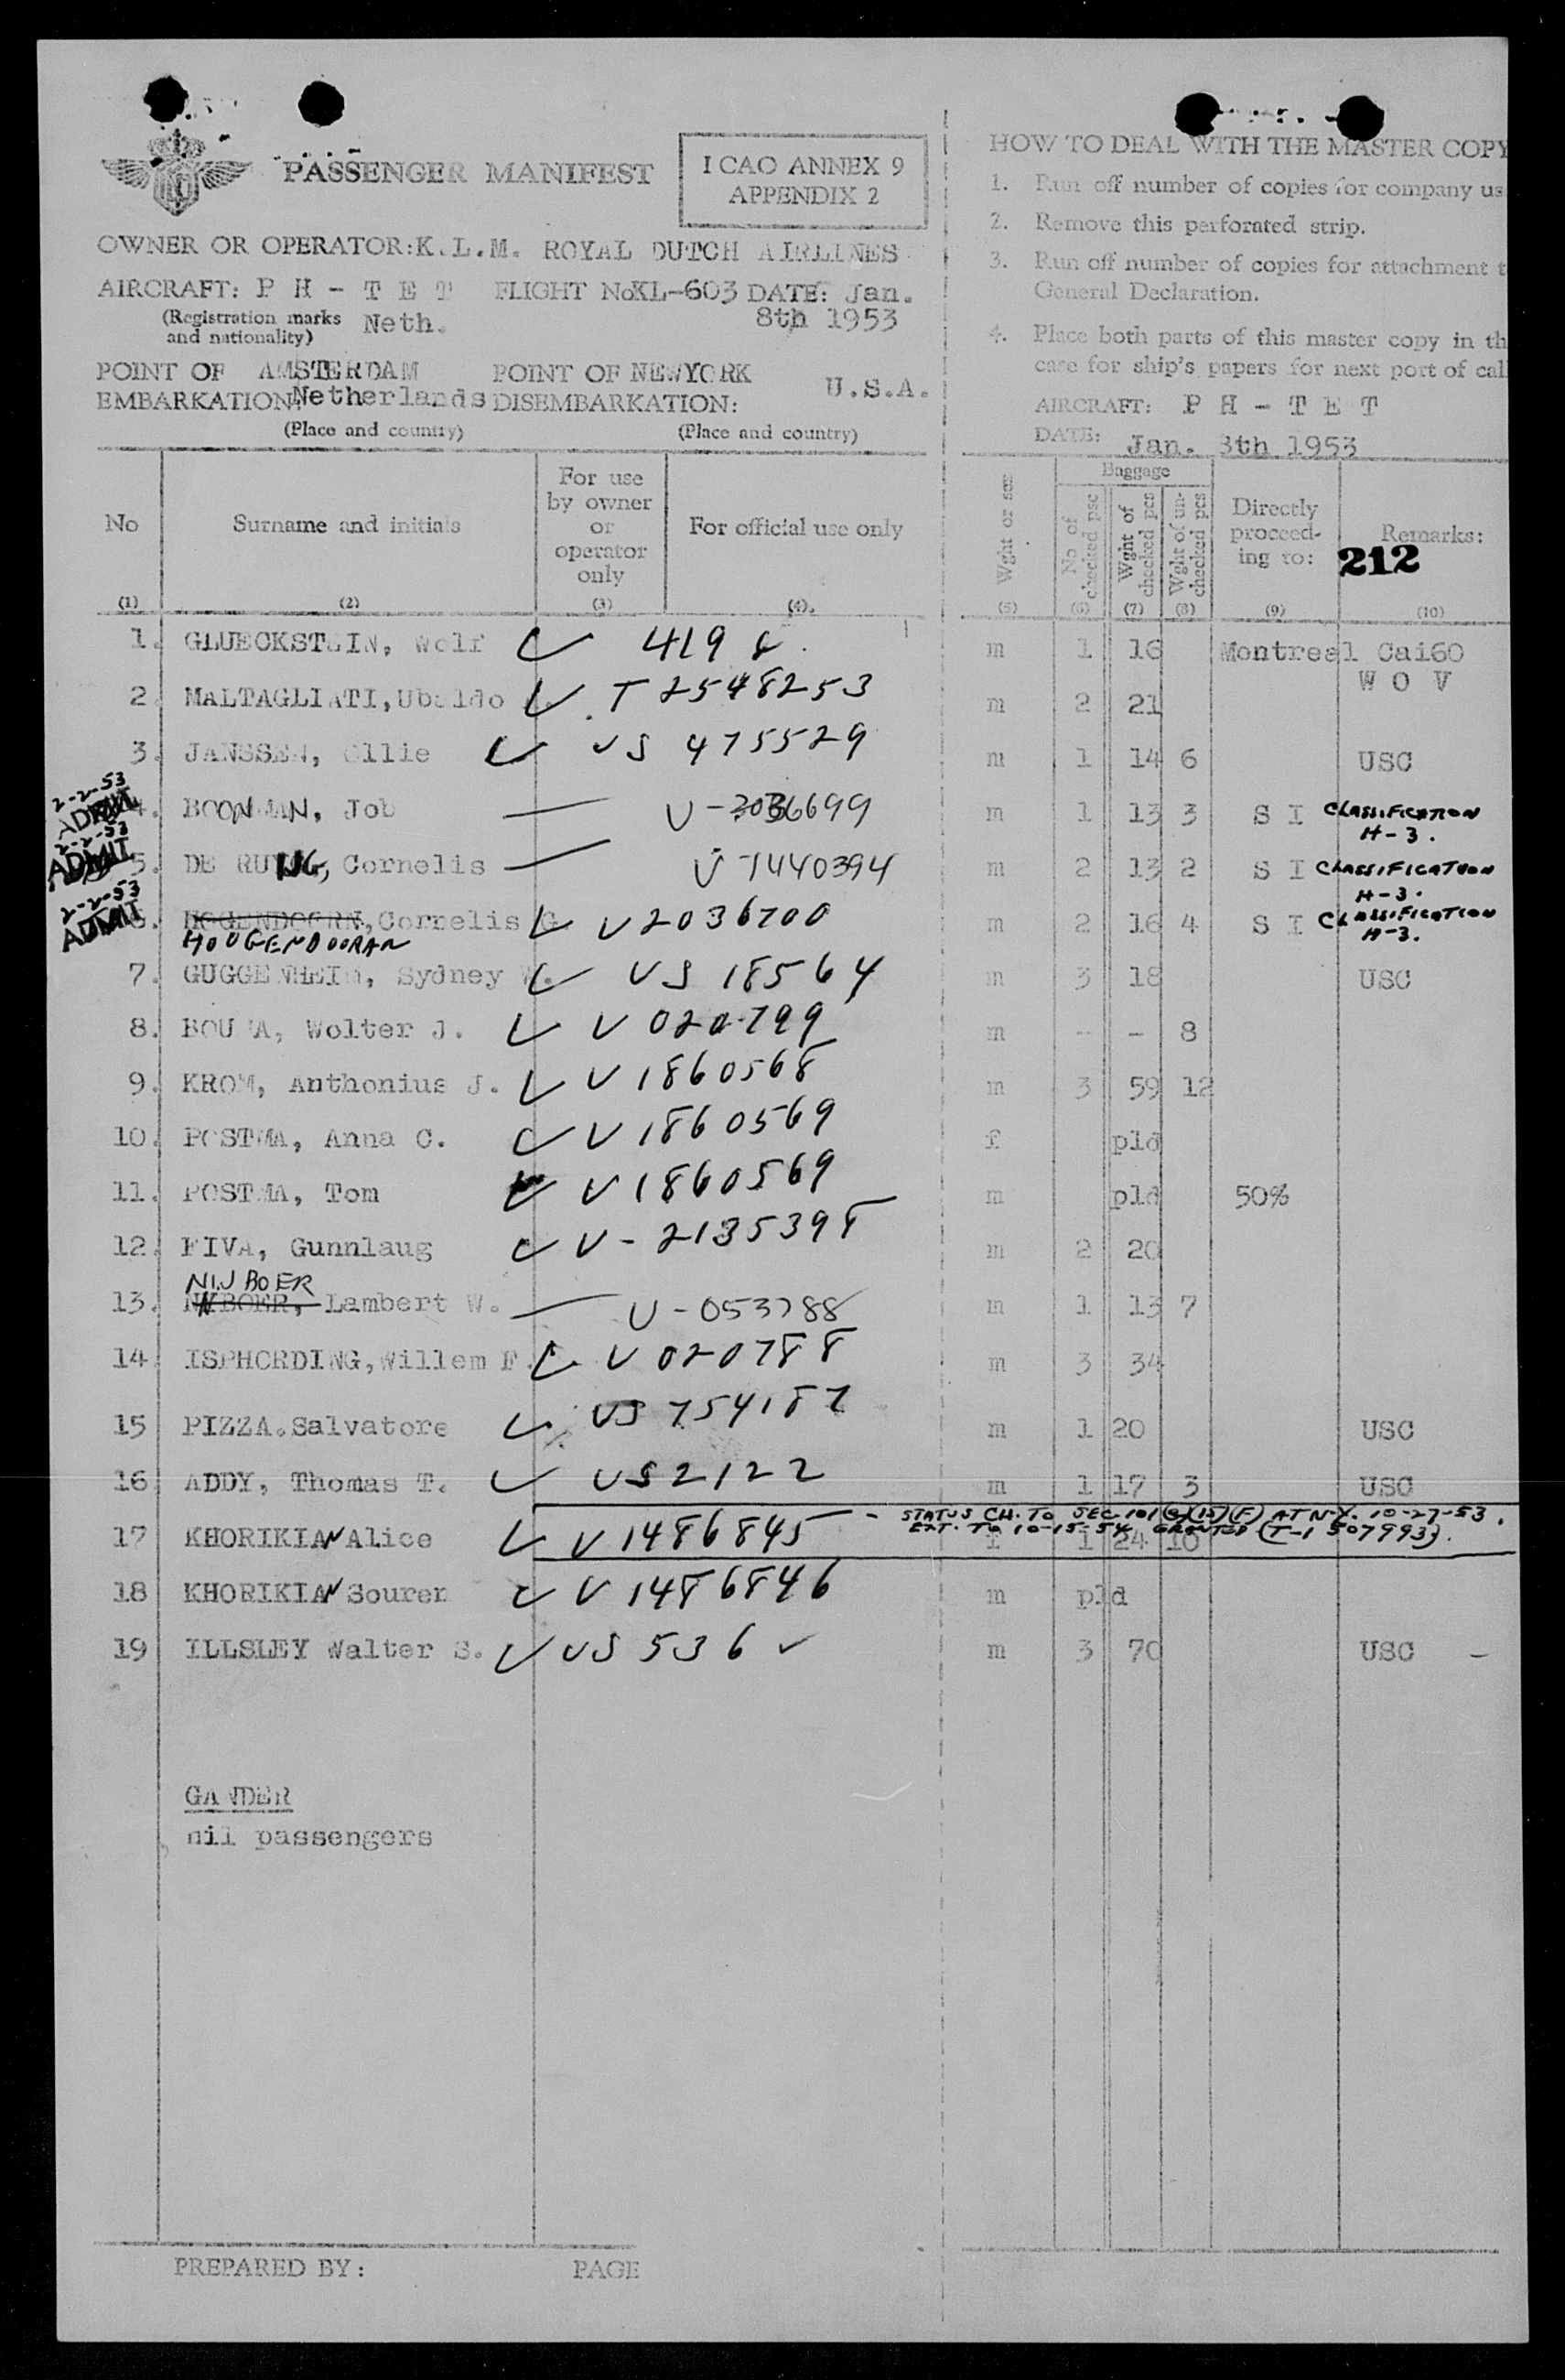 PASSENGER MANIFEST
I CAO ANNEX 9
APPENDIX 2
OWNER OR OPERATOR: K.L.M. ROYAL DUTCH AIRLINES
AIRCRAFT: P H - T E T FLIGHT No KL-603 DATE: Jan.
(Registration marks Neth. 8th 1953
and nationality)
POINT OF AMSTERDAM POINT OF NEWYORK U.S.A.
EMBARKATION: Netherlands DISEMBARKATION:
(Place and country) (Place and country)
HOW TO DEAL WITH THE MASTER COPY
1. Run off number of copies for company us
2. Remove this perforated strip.
3. Run off number of copies for attachment t
General Declaration.
4. Place both parts of this master copy in th
case for ship's papers for next port of cal
AIRCRAFT: P H - T E T
DATE: Jan. 8th 1953
No Surname and initials For use by owner or operator only For official use only
(1) (2) (3) (4)
Wght or sex Baggage No of checked psc Wght of checked pcs Wght of un-checked pcs Directly proceed-ing to: Remarks:
212
(5) (6) (7) (8) (9) (10)
1. GLUECKSTEIN, Wolf 419 m 1 16 Montreal Cai60
W O V
2. MALTAGLIATI, Ubaldo T 2548253 m 2 21
3. JANSSEN, Ollie US 475529 m 1 14 6 USC
2-2-53
ADMIT
4. BOONMAN, Job V-2036699 m 1 13 3 S I CLASSIFICATION
H-3.
2-2-53
ADMIT
5. DE RUYNG, Cornelis V-1440394 m 2 13 2 S I CLASSIFICATION
H-3.
2-2-53
ADMIT
6. HOGENDOORN, Cornelis G. V2036700 m 2 16 4 S I CLASSIFICATION
H-3.
HOOGENDOORAN
7. GUGGENHEIM, Sydney US 18564 m 3 18 USC
8. BOUMA, Wolter J. V 020799 m - - 8
9. KROM, Anthonius J. V 1860568 m 3 59 12
10. POSTMA, Anna C. V 1860569 f pld
11. POSTMA, Tom V 1860569 m pld 50%
12. FIVA, Gunnlaug V-2135398 m 2 20
NIJBOER
13. Lambert W. V-053788 m 1 13 7
14. ISPHORDING, Willem F. V 020788 m 3 34
15 PIZZA. Salvatore US 754187 m 1 20 USC
16 ADDY, Thomas T. US 2122 m 1 17 3 USC
- STATUS CH. TO SEC 101 (a)(15)(F) AT N.Y. 10-27-53.
EXT. TO 10-15-54 GRANTED (T-1 507993).
17 KHORIKIAN Alice V 1486845 f 1 24 10
18 KHORIKIAN Souren V 1486846 m pld
19 ILLSLEY Walter S. US 536 m 3 70 USC -
GANDER
nil passengers
PREPARED BY: PAGE